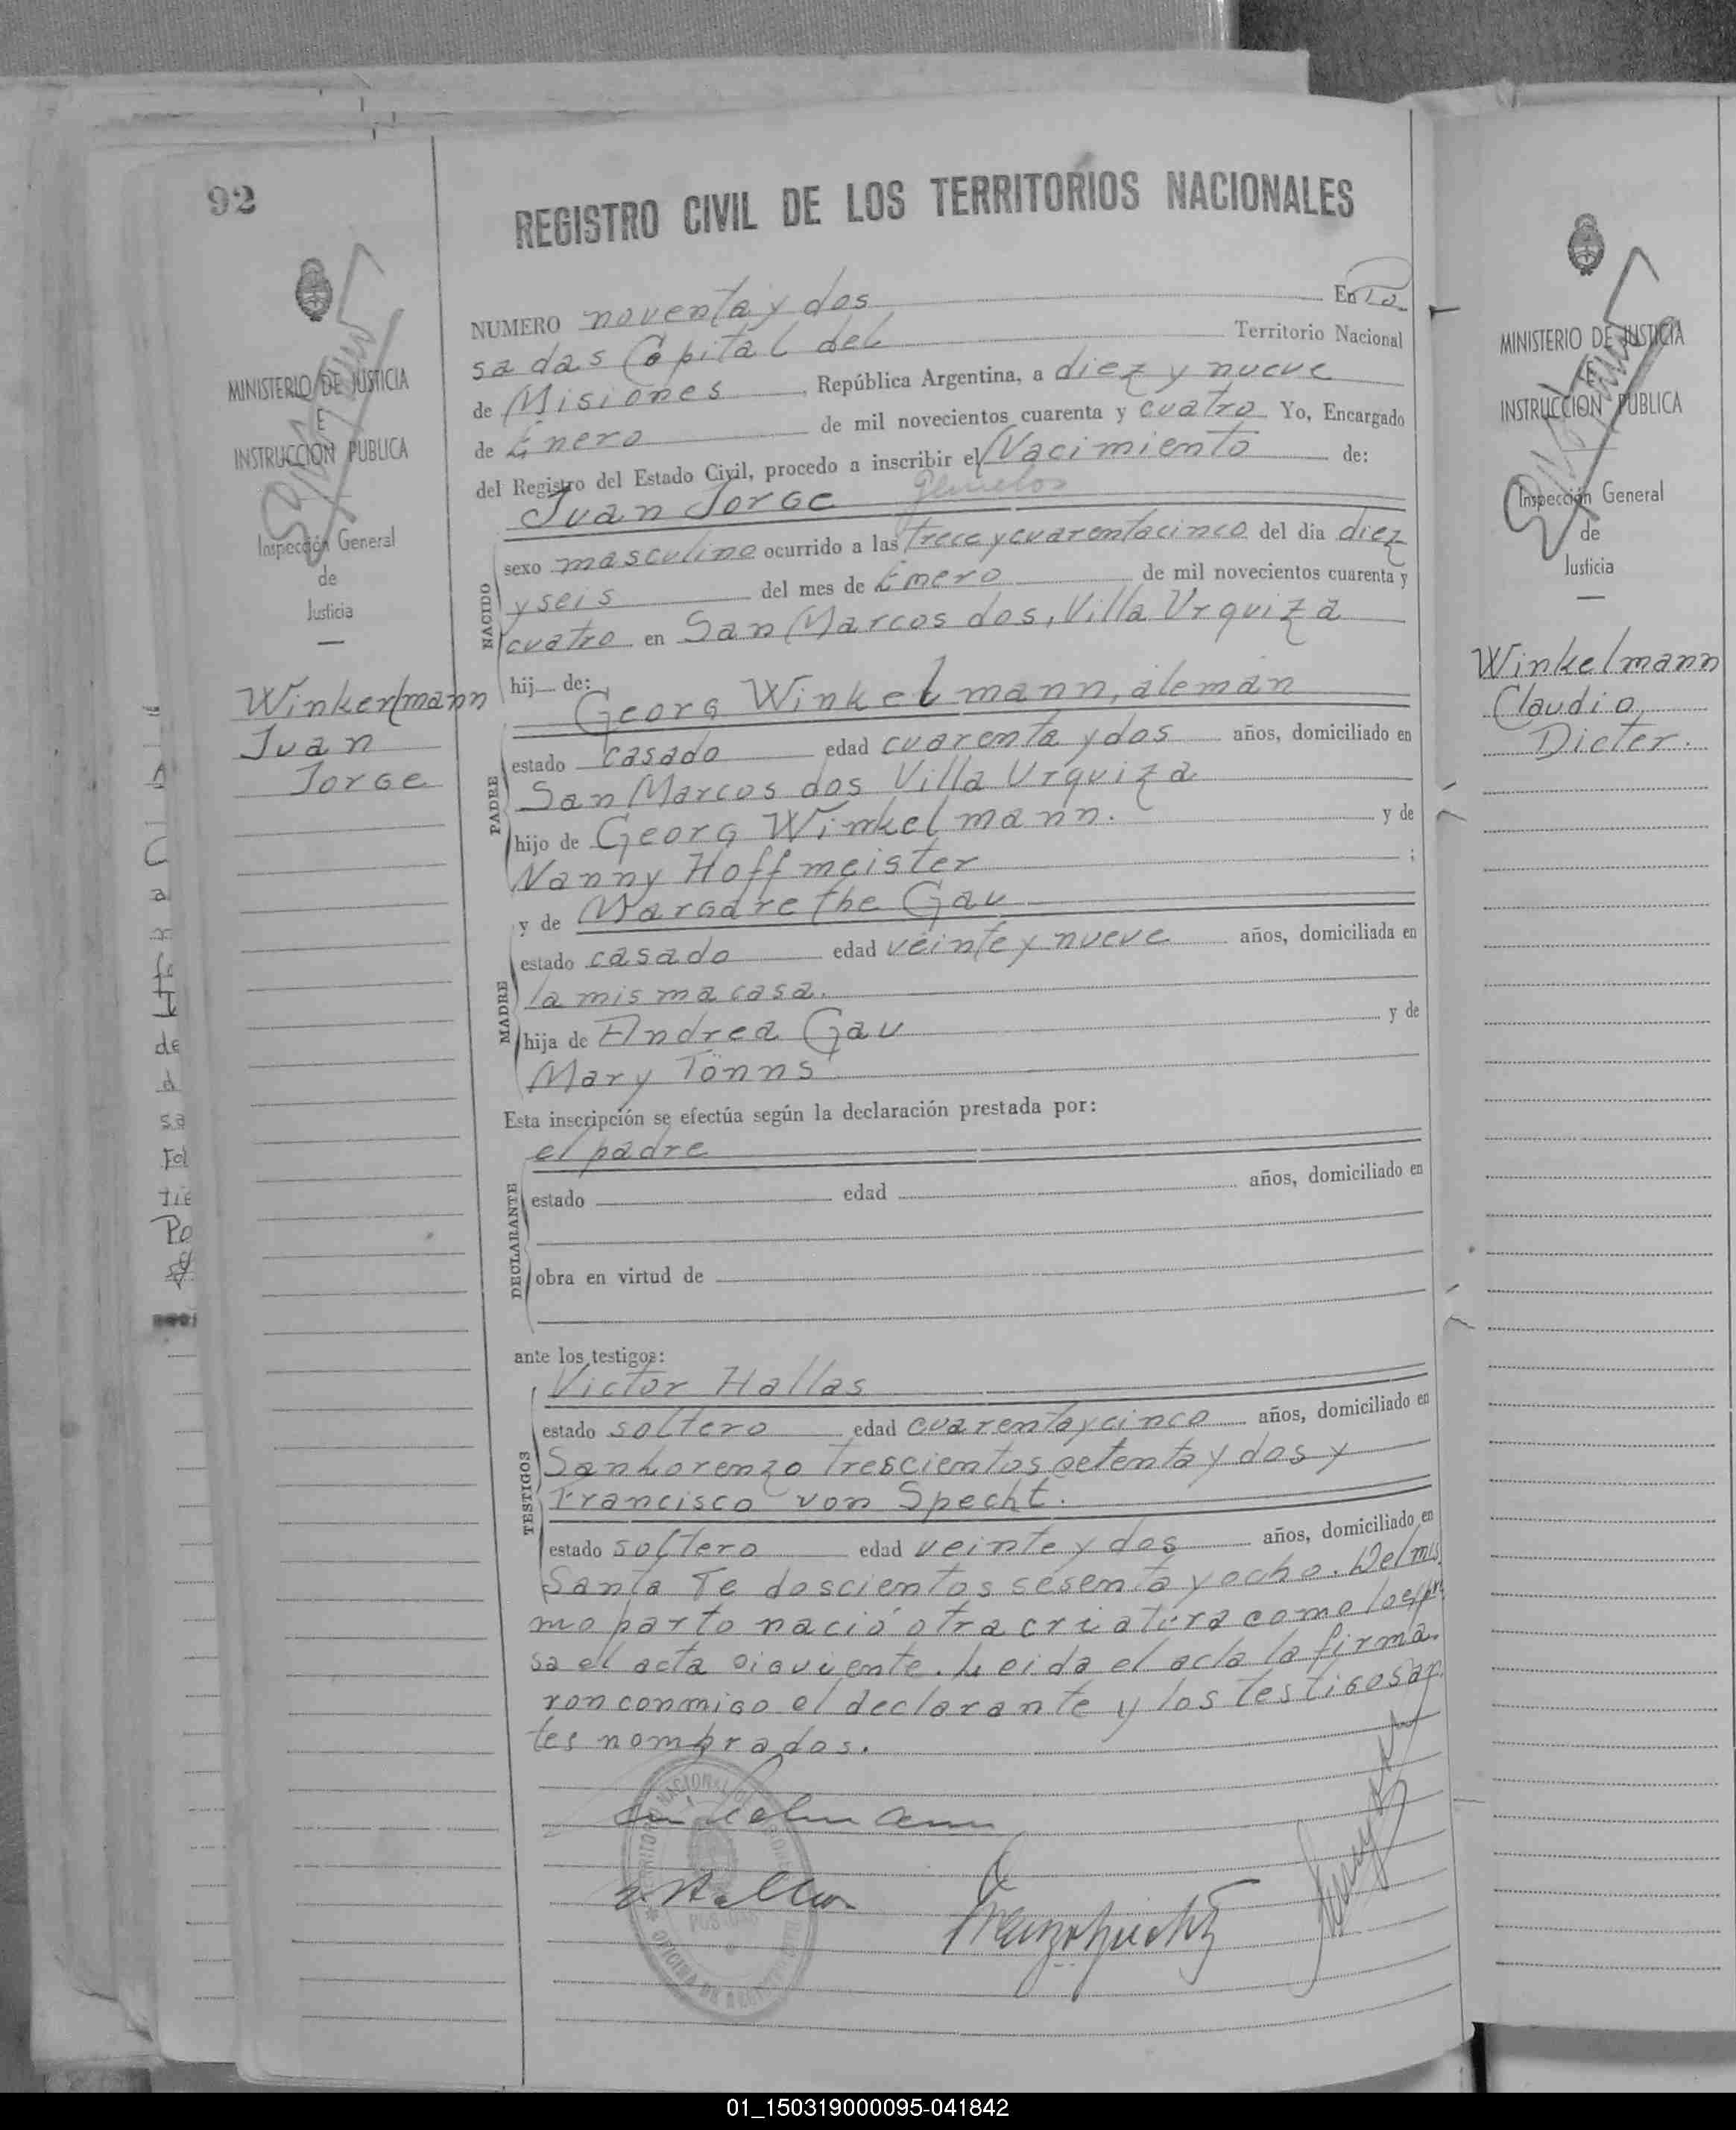 92
REGISTRO CIVIL DE LOS TERRITORIOS NACIONALES
MINISTERIO DE JUSTICIA
E
INSTRUCCION PUBLICA
Inspección General
de
Justicia
Winkerlmann
Juan
Jorge
NUMERO noventa y dos En Po
sadas Capital del Territorio Nacional
de Misiones, República Argentina, a diez y nueve
de Enero de mil novecientos cuarenta y cuatro Yo, Encargado
del Registro del Estado Civil, procedo a inscribir el Nacimiento de:
Juan Jorge gemelos
NACIDO
sexo masculino ocurrido a las trece y cuarentacinco del dia diez
y seis del mes de Enero de mil novecientos cuarenta y
cuatro en San Marcos dos, Villa Urquiza
hij de:
Georg Winkelmann, alemán
PADRE
estado casado edad cuarenta y dos años, domiciliado en
San Marcos dos Villa Urquiza
hijo de Georg Winkelmann. y de
Nanny Hoffmeister ;
y de Margarethe Gau
MADRE
estado casado edad veinte y nueve años, domiciliada en
la misma casa.
hija de Andrea Gau y de
Mary Tönns
Esta inscripción se efectúa según la declaración prestada por:
el padre
DECLARANTE
estado edad años, domiciliado en
obra en virtud de
ante los testigos:
Victor Hallas
TESTIGOS
estado soltero edad cuarenta y cinco años, domiciliado en
San Lorenzo trescientos setenta y dos y
Francisco von Specht.
estado soltero edad veinte y dos años, domiciliado en
Santa Fe doscientos sesenta y ocho. Del mis
mo parto nació otra criatura como lo expre
sa el acta siguiente. Leida el acta la firma.
ron conmigo el declarante y los testigos an
tes nombrados.
MINISTERIO DE JUSTICIA
E
INSTRUCCION PUBLICA
Inspección General
de
Justicia
Winkelmann
Claudio
Dieter.
01_150319000095-041842